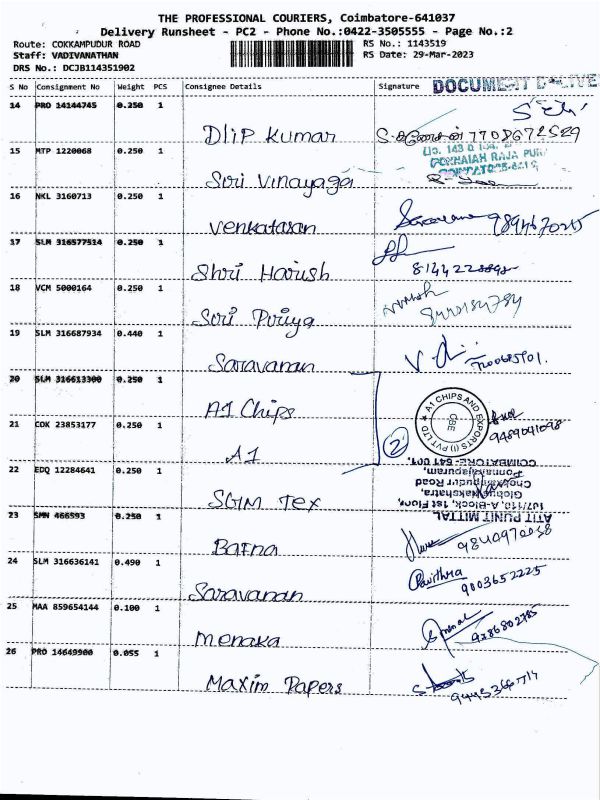 THE PROFESSIONAL COURIERS, Coimbatore-641037
Delivery Runsheet - PC2 - Phone No.:0422-3505555 - Page No.:2
Route: COKKAMPUDUR ROAD RS No.: 1143519
Staff: VADIVANATHAN RS Date: 29-Mar-2023
DRS No.: DCJB114351902
S No Consignment No Weight PCS Consignee Details Signature
14 PRO 14144745 0.250 1
Dlip Kumar
15 MTP 1220068 0.250 1
Siri Vinayaga
16 NKL 3160713 0.250 1
Venkatasan
17 SLM 316577514 0.250 1
Shri Harish 
18 VCM 5000164 0.250 1
Sri Priya
19 SLM 316687934 0.440 1
Saravanan
20 SLM 316613300 0.250 1
A1 Chips
A1 CHIPS AND EXPORTS (I) PVT LTD
CBE
21 COK 23853177 0.250 1
9489041098
2
A1
COIMBATORE- 641 001.
Ponnaiyapuram,
22 EDQ 12284641 0.250 1
Globus Nakshatra,
107/110, A-Block, 1st Floor,
SGM Tex
ATIT PUNIT MITTAL
23 SMN 466593 0.250 1
9840970038
Bafna
24 SLM 316636141 0.490 1
Pavithra
9003652225
Saravanan
25 MAA 859654144 0.100 1
Menaka
26 PRO 14649900 0.055 1
Maxim Papers